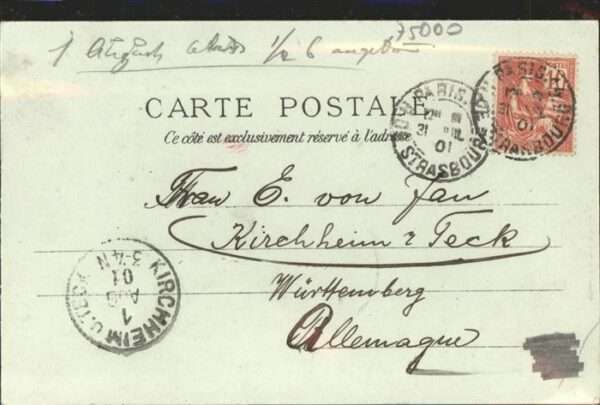 75000
1 August abends 1/2 6
CARTE POSTALE
Ce côté est exclusivement réservé à l'adresse
PARIS. STRASBOURG
31 JUIL
01
PARIS. STRASBOURG
01
Frau E. von Jan
Kirchheim u Teck
Württemberg
Allemagne
KIRCHHEIM U. TECK
1
AUG
01
3-4 N